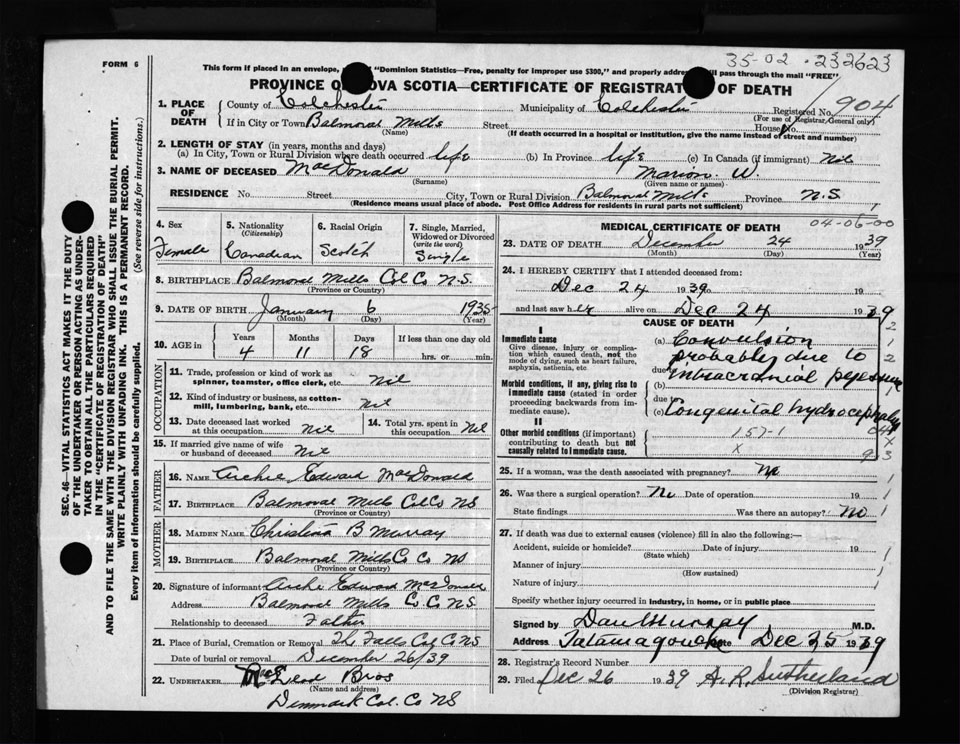 35-02-232623
FORM 6
This form if placed in an envelope, "Dominion Statistics—Free, penalty for improper use $300," and properly addres ll pass through the mail "FREE"
PROVINCE O OVA SCOTIA—CERTIFICATE OF REGISTRAT OF DEATH
1. PLACE OF DEATH
County of Colchester Municipality of Colchester Registered No. 904
(For use of Registrar General only)
If in City or Town Balmoral Mills Street House No.
(Name) (If death occurred in a hospital or institution, give the name instead of street and number)
2. LENGTH OF STAY (in years, months and days)
(a) In City, Town or Rural Division where death occurred life (b) In Province life (c) In Canada (if immigrant) Nil
3. NAME OF DECEASED MacDonald Marion W.
(Surname) (Given name or names)
RESIDENCE No. Street City, Town or Rural Division Balmoral Mills Province N.S.
(Residence means usual place of abode. Post Office Address for residents in rural parts not sufficient)
4. Sex
Female
5. Nationality
(Citizenship)
Canadian
6. Racial Origin
Scotch
7. Single, Married, Widowed or Divorced
(write the word)
Single
8. BIRTHPLACE Balmoral Mills Col Co N.S.
(Province or Country)
9. DATE OF BIRTH January 6 1935
(Month) (Day) (Year)
10. AGE in
Years Months Days If less than one day old
4 11 18 hrs. or min.
OCCUPATION
11. Trade, profession or kind of work as spinner, teamster, office clerk, etc. Nil
12. Kind of industry or business, as cotton-mill, lumbering, bank, etc. Nil
13. Date deceased last worked at this occupation Nil
14. Total yrs. spent in this occupation Nil
15. If married give name of wife or husband of deceased Nil
FATHER
16. NAME Archie Edward MacDonald
17. BIRTHPLACE Balmoral Mills Col Co NS
(Province or Country)
MOTHER
18. MAIDEN NAME Christina B Murray
19. BIRTHPLACE Balmoral Mills C Co NS
(Province or Country)
20. Signature of informant Archie Edward McDonald
Address Balmoral Mills C Co NS
Relationship to deceased Father
21. Place of Burial, Cremation or Removal The Falls Col Co NS
Date of burial or removal December 26/39
22. UNDERTAKER Bros
(Name and address)
Denmark Col. Co NS
MEDICAL CERTIFICATE OF DEATH 04-06-00
23. DATE OF DEATH December 24 1939
(Month) (Day) (Year)
24. I HEREBY CERTIFY that I attended deceased from:
Dec 24 1939 19
and last saw her alive on Dec 24 1939
CAUSE OF DEATH
I
Immediate cause
Give disease, injury or complication which caused death, not the mode of dying, such as heart failure, asphyxia, asthenia, etc
(a) Convulsion
probably due to
due
intracranial pressure
Morbid conditions, if any, giving rise to immediate cause (stated in order proceeding backwards from immediate cause).
(b)
due
(c) Congenital hydrocephalus
II
Other morbid conditions (if important) contributing to death but not causally related to immediate cause.
157-1
x
25. If a woman, was the death associated with pregnancy? No
26. Was there a surgical operation? No Date of operation 19
State findings Was there an autopsy? No
27. If death was due to external causes (violence) fill in also the following:—
Accident, suicide or homicide? Date of injury 19
(State which)
Manner of injury
(How sustained)
Nature of injury
Specify whether injury occurred in industry, in home, or in public place
Signed by Dan Murray M.D.
Address Tatamagouche Date Dec 25 1939
28. Registrar's Record Number
29. Filed Dec 26 1939 A. R. Sutherland
(Division Registrar)
SEC. 46—VITAL STATISTICS ACT MAKES IT THE DUTY
OF THE UNDERTAKER OR PERSON ACTING AS UNDER-
TAKER TO OBTAIN ALL THE PARTICULARS REQUIRED
IN THE "CERTIFICATE OF REGISTRATION OF DEATH"
AND TO FILE THE SAME WITH THE DIVISION REGISTRAR WHO SHALL ISSUE THE BURIAL PERMIT.
WRITE PLAINLY WITH UNFADING INK. THIS IS A PERMANENT RECORD.
Every item of information should be carefully supplied. (See reverse side for instructions.)